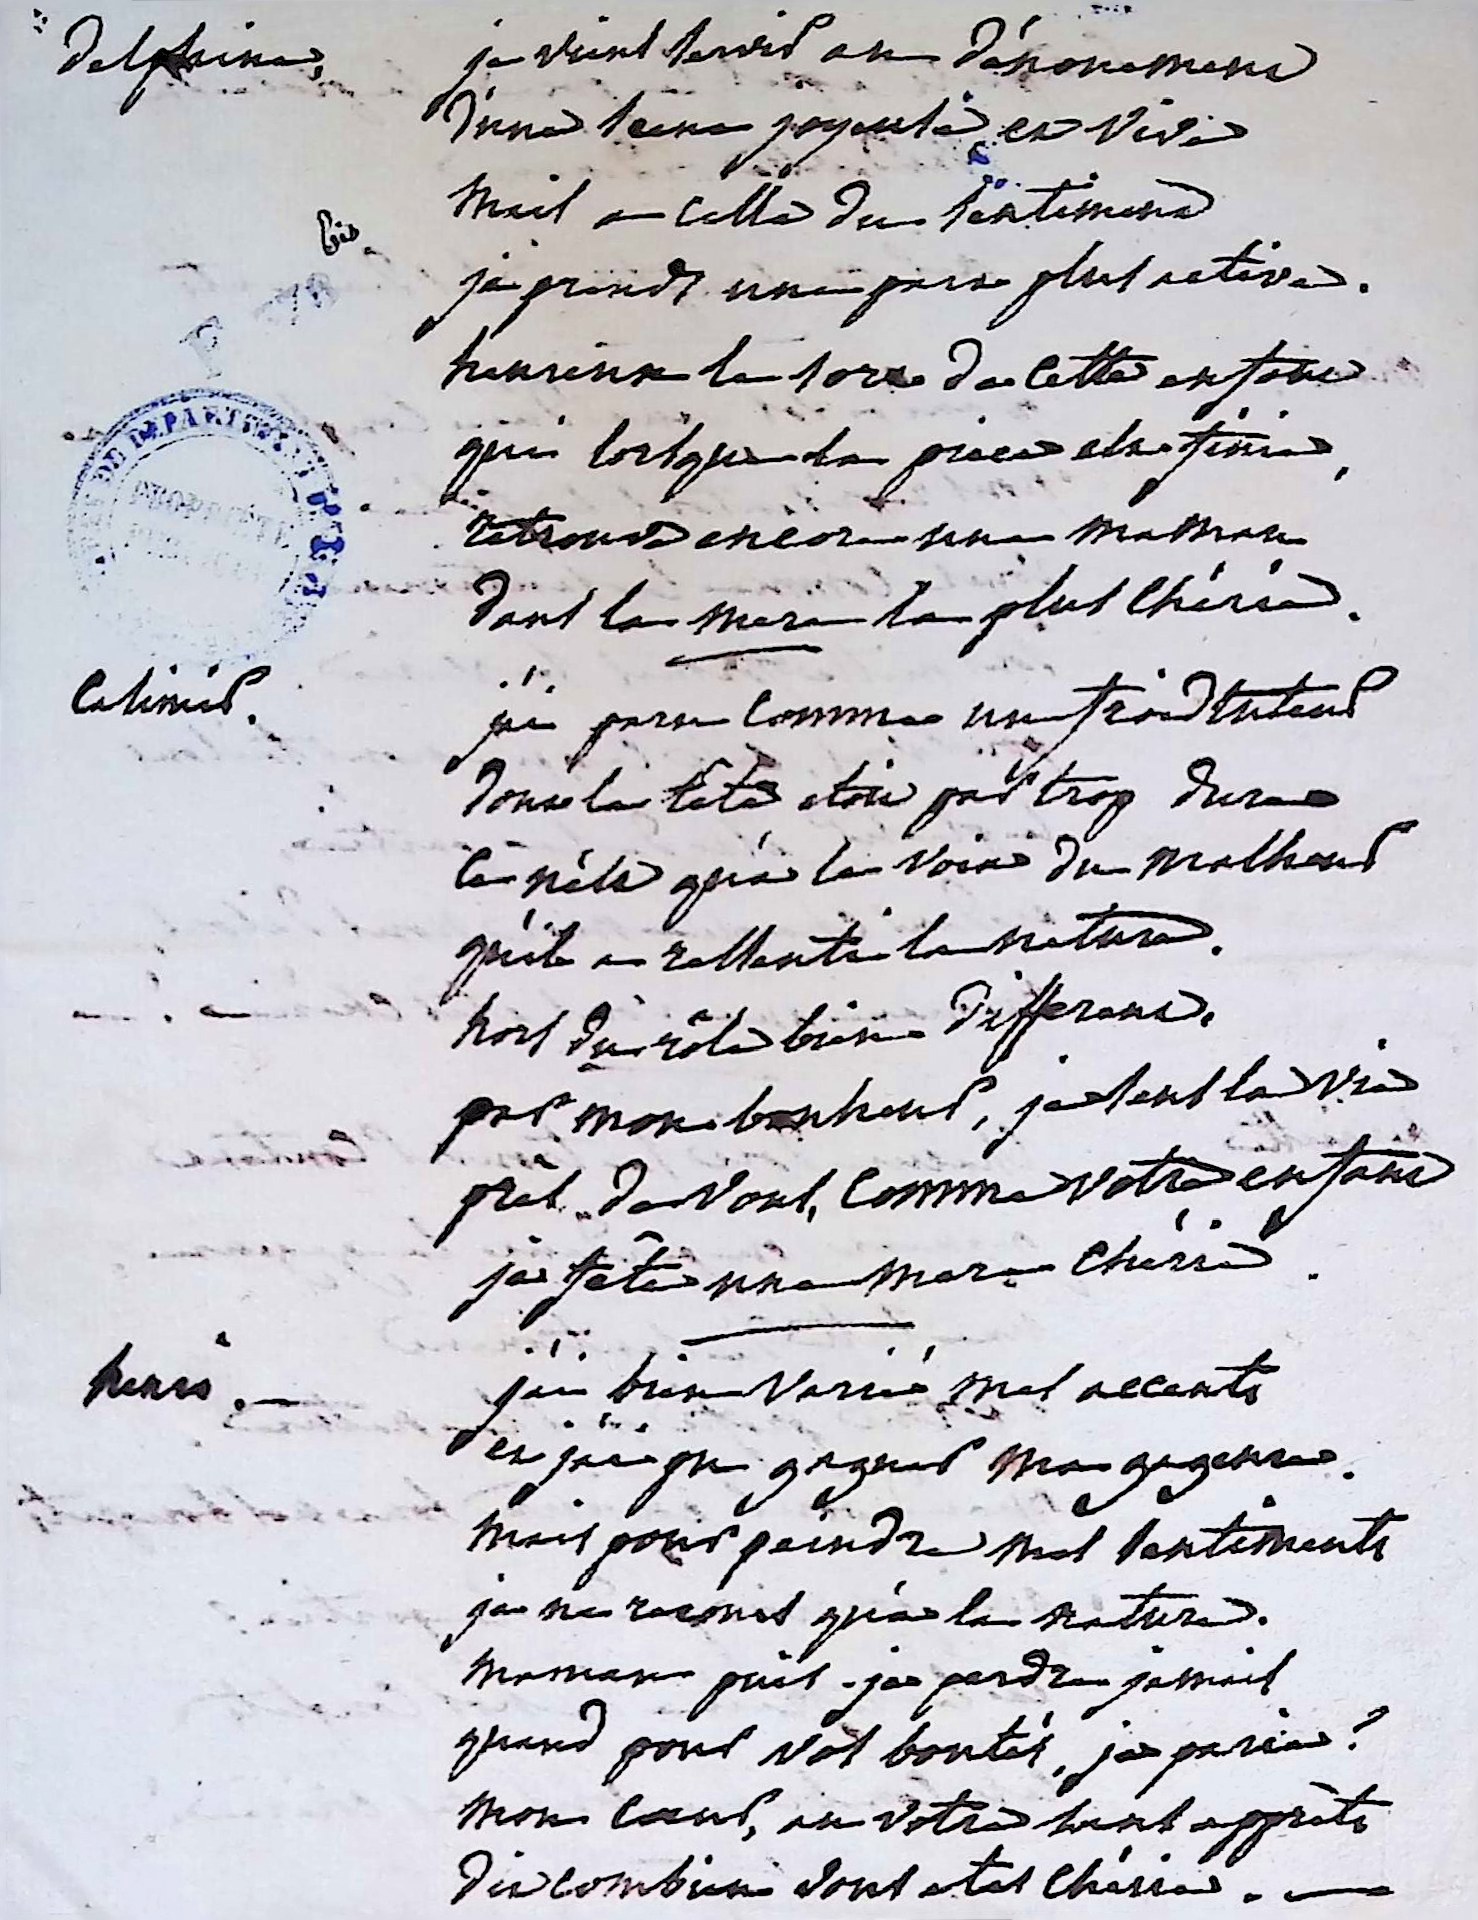 delphine,
je viens servir au dénoument
d'une scene joyeuse, et vive
mais a celle du sentiment
bis.
je prends une part plus active.
heureux le sort de cette enfant
qui lorsque la piece est finie,
retrouve encore une maman
dans la mere la plus chérie.
Casimir.
j'ai paru comme un froid tuteur
dont la tête étoit pas trop dure
ce n'est qu'a la voix du malheur
qu'il a rallenti la nature.
hors du rôle bien different,
par mon bonheur, je sens la vie
près de vous, comme votre enfant
je fête une mere chérie.
henri.
j'ai bien varié mes accents
et j'ai pu gagner ma gageure.
mais pour peindre mes sentiments
je ne recours qu'a la nature.
maman puis-je perdre jamais
quand pour vos bontés, je parie?
mon coeur, au votre sans apprêts
dit combien vous etes chérie.
DE DEPARTEMENT DE
PROPRIÉTÉ
PUBLIQUE